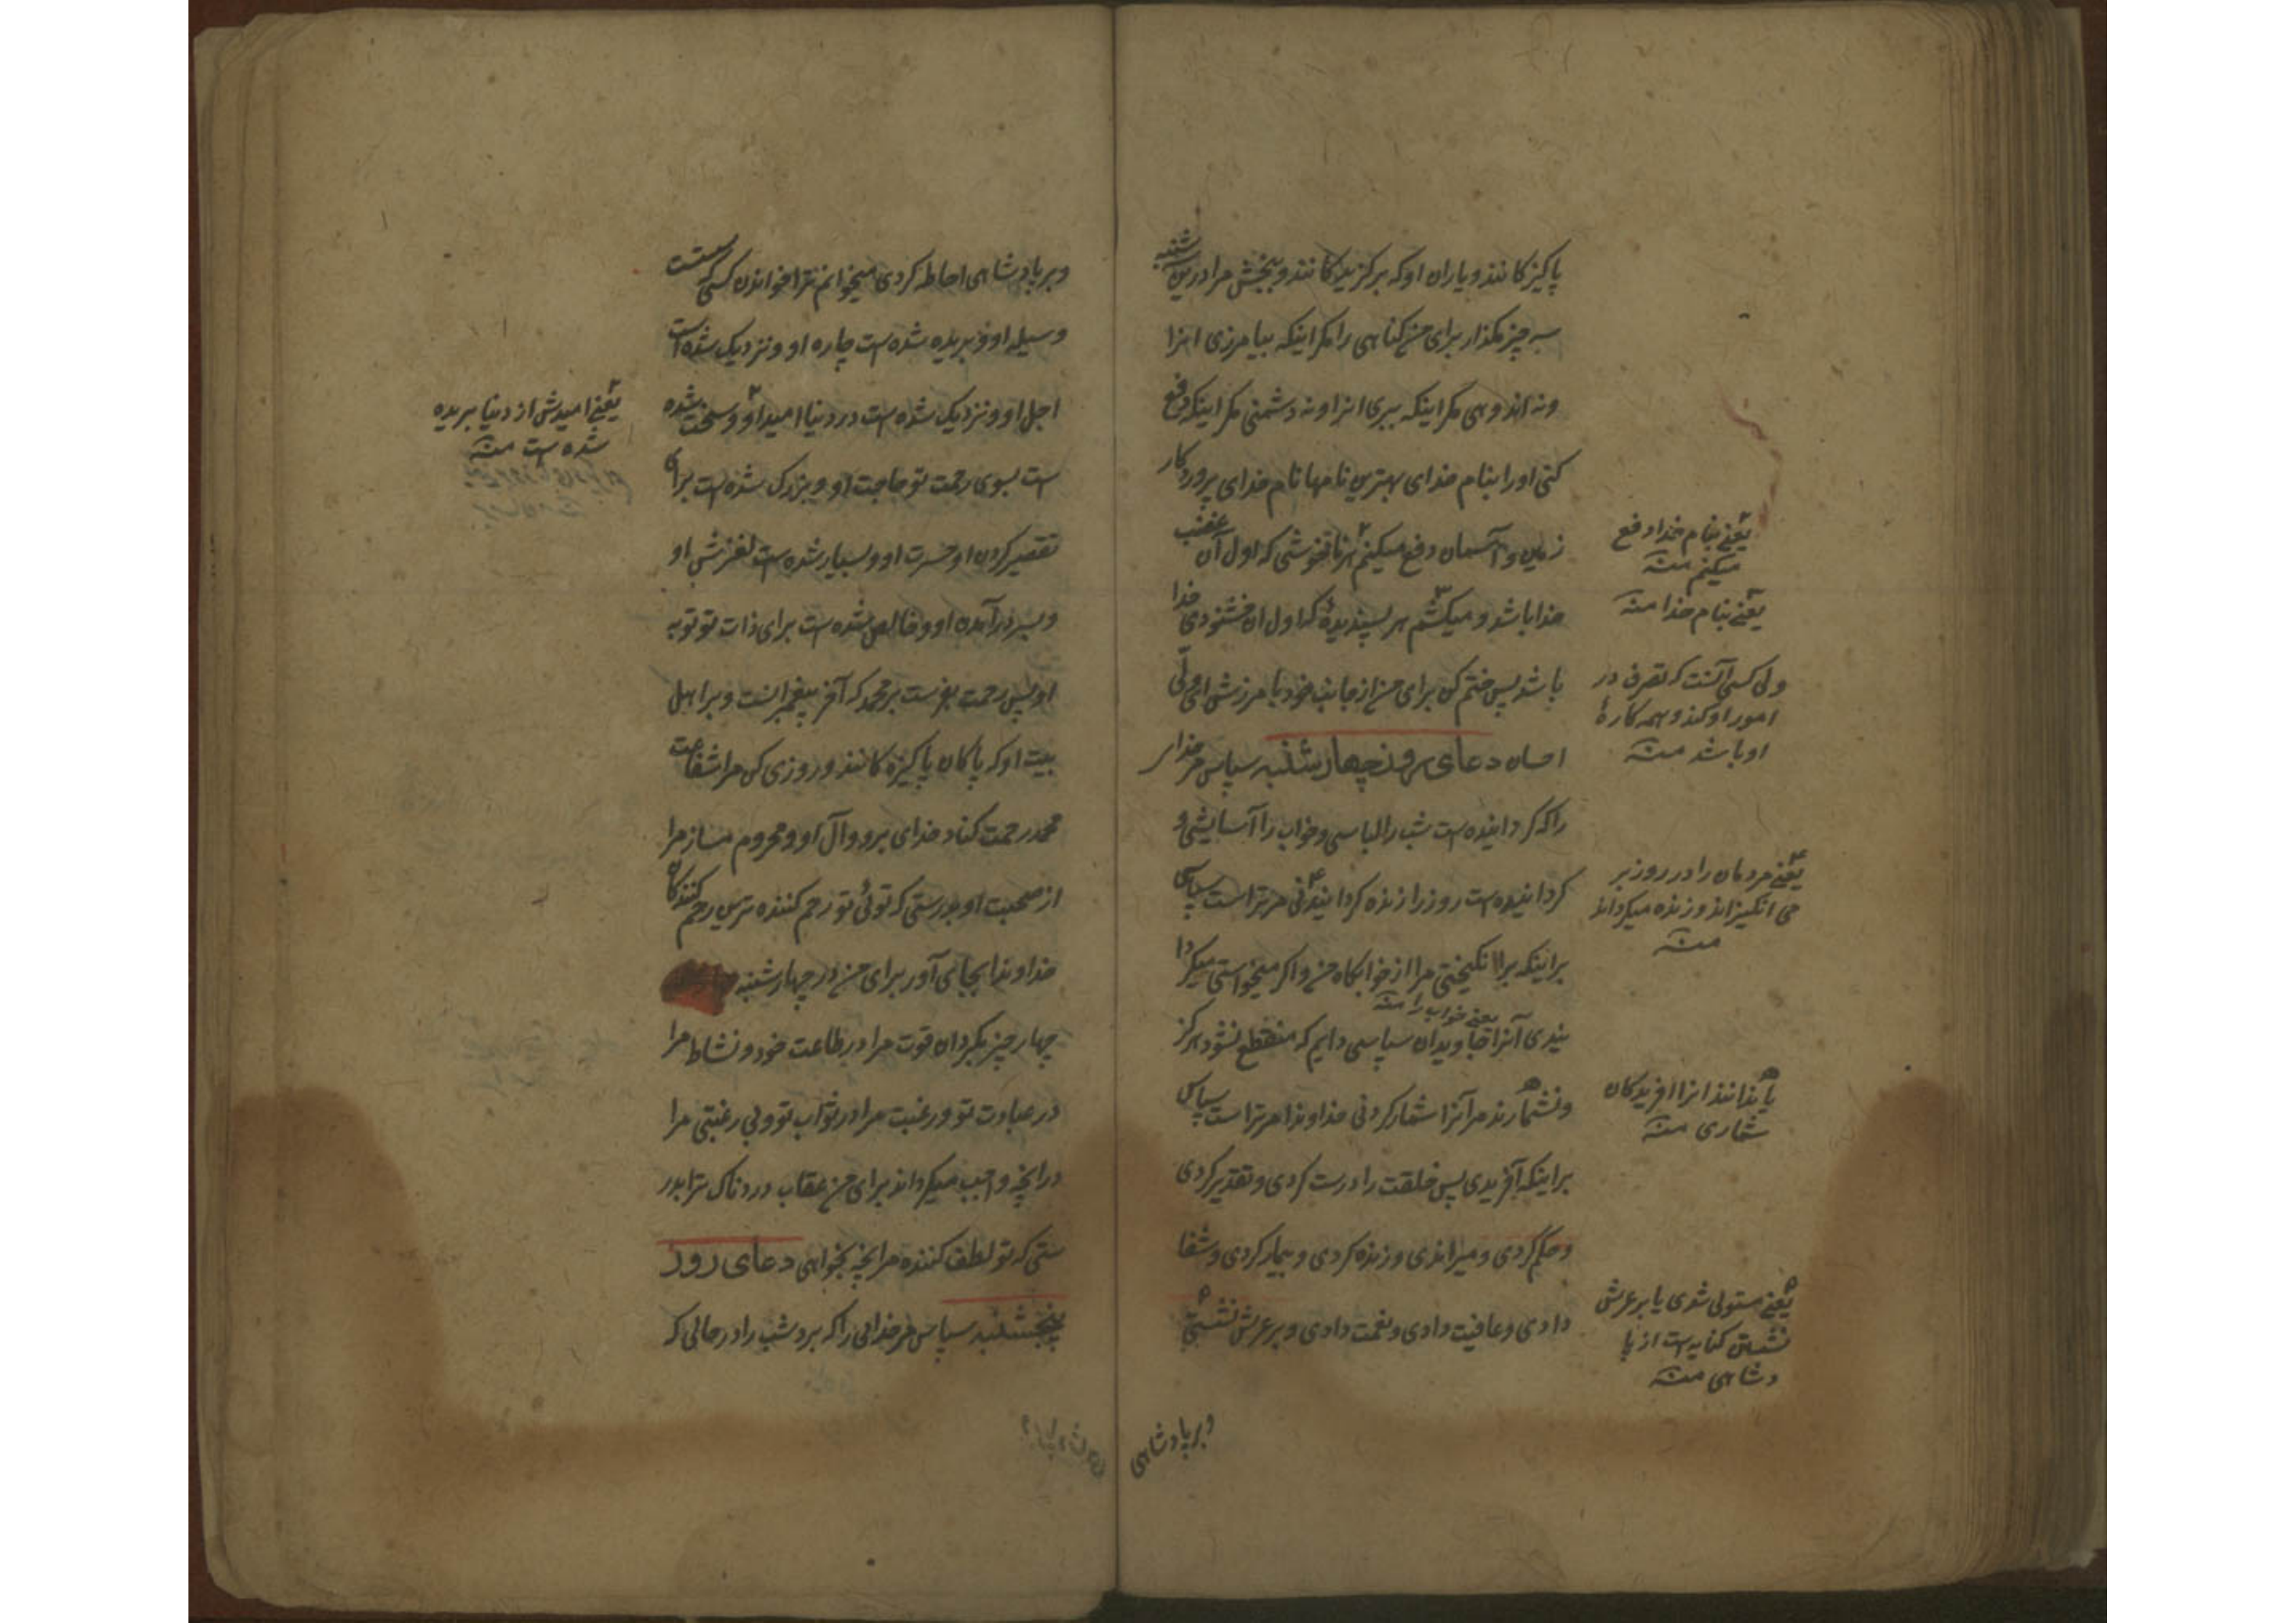 پاکیزکانند و یاران او که برکزیدکانند و ببخش مرا درین سه شنبه
سه چیز مکذار برای من کناهی را مکر اینکه بیامرزی انرا
ونه اندوهی مکر اینکه ببری انرا و نه دشمنی مکر اینکه دفع
کنی او را بنام خدای بهترین نامها نام خدای پروردکار
زمین و آسمان دفع میکنم هر ناخوشی که اول آن غضب
خدا باشد و میکشم هر پسندیدهٔ که اول ان خشنودی خدا
باشد پس ختم کن برای من از جانب خود بامرزش ای ولی
احسان دعای روز چهارشنبه سپاس مر خدایرا
را که کردانیده است شب را لباسی و خواب را آسایشی و
کردانیده است روز را زنده کردانیدنی مر تراست سپاس
براینکه برانکیختی مرا از خوابکاه من و اکر میخواستی میکردا
یعنی خواب را منه
نیدی آنرا جاویدان سپاسی دایم که منقطع نشود هرکز
و نشمارند مر آنرا شمار کردنی خداوندا مر تراست سپاس
براینکه آفریدی پس خلقت را درست کردی و تقدیر کردی
و حکم کردی و میراندی و زنده کردی و بیمار کردی و شفا
دادی و عافیت دادی و نعمت دادی و بر عرش نشستی
وبر پادشاهی
یعنی بنام خدا دفع
میکنم منه
یعنی بنام خدا منه
ولی کسی آنست که تصرف در
امور او کند و همه کارهٔ
او باشد منه
یعنی مردمان را در روز بر
می انکیزاند و زنده میکرداند
منه
یا ندانند انرا افریدکان
شماری منه
یعنی مستولی شدی یا بر عرش
نشستن کنایه است از پا
دشاهی منه
وبر پادشاهی احاطه کردی میخوانم ترا خواندن کسی که سست
وسیله او و بریده شده است چاره او و نزدیک شده است
اجل او و نزدیک شده است در دنیا امید او و سخت شده
است بسوی رحمت تو حاجت او و بزرک شده است برای
تقصیر کردن او حسرت او و بسیار شده است لغزش او
وبسر درآمدن او و خالص شده است برای ذات تو توبه
او پس رحمت بفرست بر محمد که آخر پیغمبرانست و بر اهل
بیت او که پاکان پاکیزه کانند و روزی کن مرا شفاعت
محمد رحمت کناد خدای برو و آل او و محروم مساز مرا
از صحبت او بدرستی که توئی تو رحم کننده ترین رحم کنندکان
خداوندا بجای آور برای من در چهارشنبه
چهار چیز بکردان قوت مرا در طاعت خود و نشاط مرا
در عبادت تو و رغبت مرا در ثواب تو و بی رغبتی مرا
در آنچه واجب میکرداند برای من عقاب دردناک ترا بدر
ستی که تو لطف کننده مر آنچه بخواهی دعای روز
پنجشنبه سپاس مر خدائی را که برد شب را در حالی که
یعنی امیدش از دنیا بریده
شده است منه